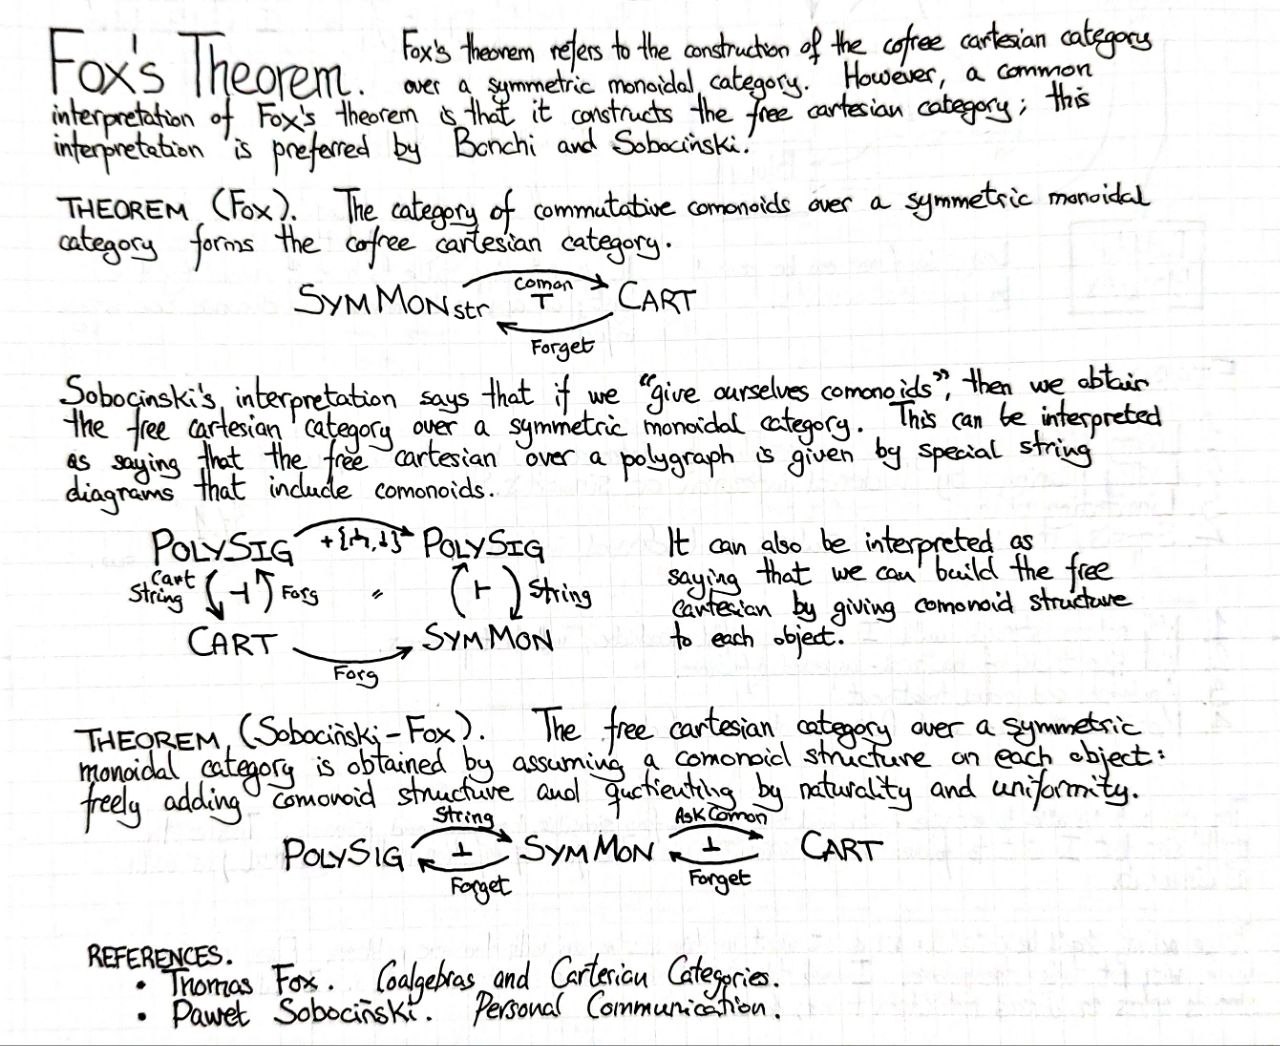 Fox's Theorem.
Fox's theorem refers to the construction of the cofree cartesian category
over a symmetric monoidal category. However, a common
interpretation of Fox's theorem is that it constructs the free cartesian category; this
interpretation is preferred by Bonchi and Sobociński.
THEOREM (Fox). The category of commutative comonoids over a symmetric monoidal
category forms the cofree cartesian category.
Comon
SYMMONstr ⊤ CART
Forget
Sobocinski's interpretation says that if we "give ourselves comonoids", then we obtain
the free cartesian category over a symmetric monoidal category. This can be interpreted
as saying that the free cartesian over a polygraph is given by special string
diagrams that include comonoids.
POLYSIG POLYSIG
Cart
String ⊣ Forg ⊢ String
CART SYMMON
Forg
It can also be interpreted as
saying that we can build the free
cartesian by giving comonoid structure
to each object.
THEOREM (Sobociński-Fox). The free cartesian category over a symmetric
monoidal category is obtained by assuming a comonoid structure on each object:
freely adding comonoid structure and quotienting by naturality and uniformity.
String AskComon
POLYSIG ⊥ SYMMON ⊥ CART
Forget Forget
REFERENCES.
• Thomas Fox. Coalgebras and Cartesian Categories.
• Paweł Sobociński. Personal Communication.